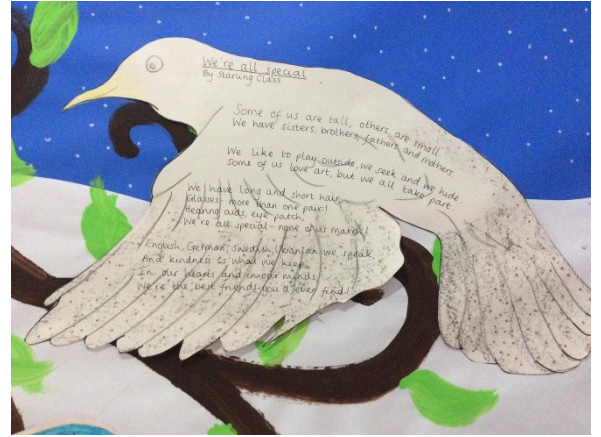 We're all special
By Starling Class
Some of us are tall, others are small.
We have sisters, brothers, fathers and mothers.
We like to play outside, we seek and we hide
Some of us love art, but we all take part.
We have long and short hair,
Glasses - more than one pair!
Hearing aids, eye patch,
We're all special - none of us match!
English, German, Swedish, Ukranian we speak,
And kindness is what we keep
In our hearts and in our minds,
We're the best friends you'd ever find!